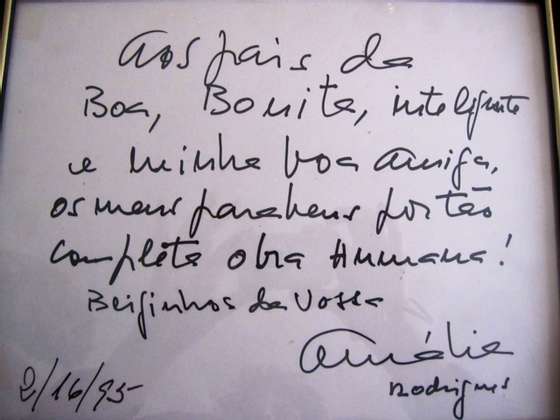 Aos pais da
Boa, Bonita, inteligente
e minha boa amiga,
os meus parabens por tão
completa obra Humana!
Beijinhos da Vossa
Amália
Rodrigues
2/16/95